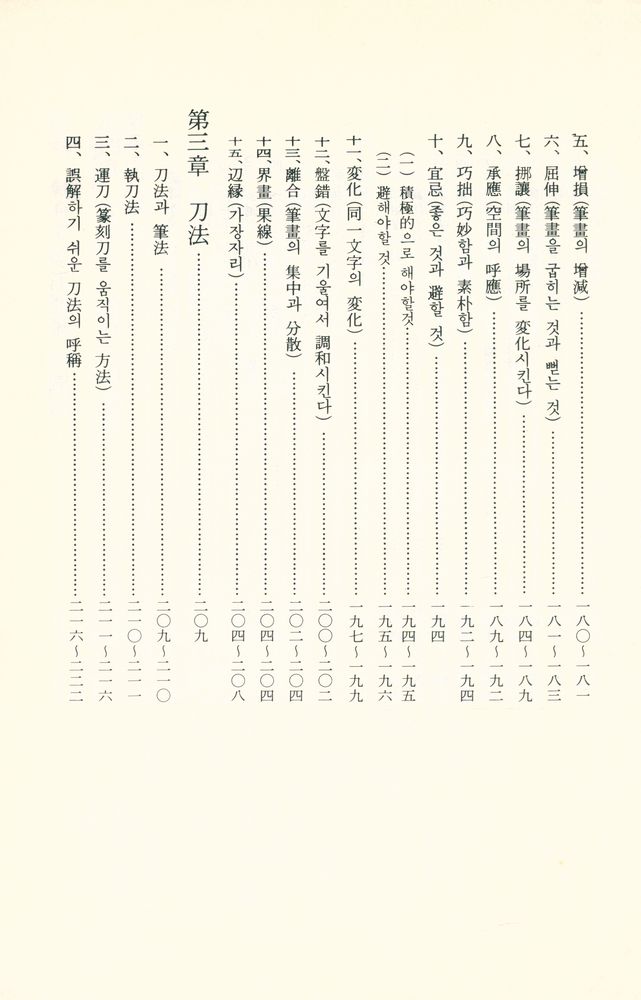 五、增損(筆畫의 增減)……一八〇~一八一
六、屈伸(筆畫을 굽히는 것과 뻗는 것)……一八一~一八三
七、挪讓(筆畫의 場所를 変化시킨다)……一八四~一八九
八、承應(空間의 呼應)……一八九~一九二
九、巧拙(巧妙함과 素朴함)……一九二~一九四
十、宜忌(좋은 것과 避할 것)……一九四
(一) 積極的으로 해야할것……一九四~一九五
(二) 避해야할 것……一九五~一九六
十一、変化(同一文字의 変化)……一九七~一九九
十二、盤錯(文字를 기울여서 調和시킨다)……二〇〇~二〇二
十三、離合(筆畫의 集中과 分散)……二〇二~二〇四
十四、界畫(果線)……二〇四~二〇四
十五、辺縁(가장자리)……二〇四~二〇八
第三章 刀法……二〇九
一、刀法과 筆法……二〇九~二一〇
二、執刀法……二一〇~二一一
三、運刀(篆刻刀를 움직이는 方法)……二一一~二一六
四、誤解하기 쉬운 刀法의 呼稱……二一六~二二二